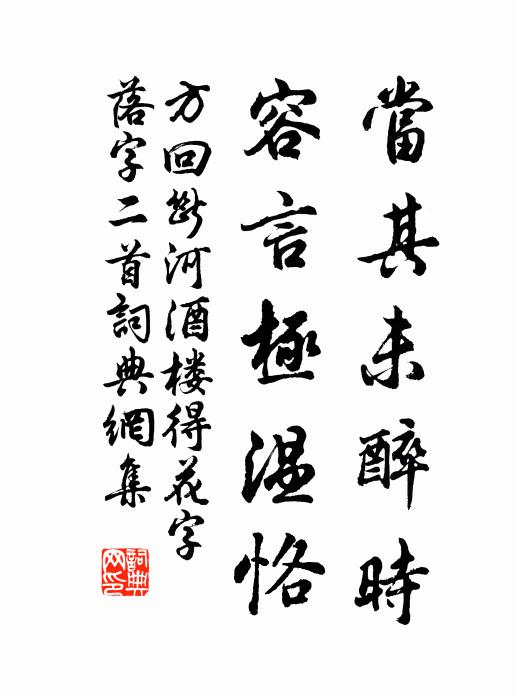 當其未醉時
容言極温恪
方回斷河酒楼得花字
落字二首詞典網集
詞典網印